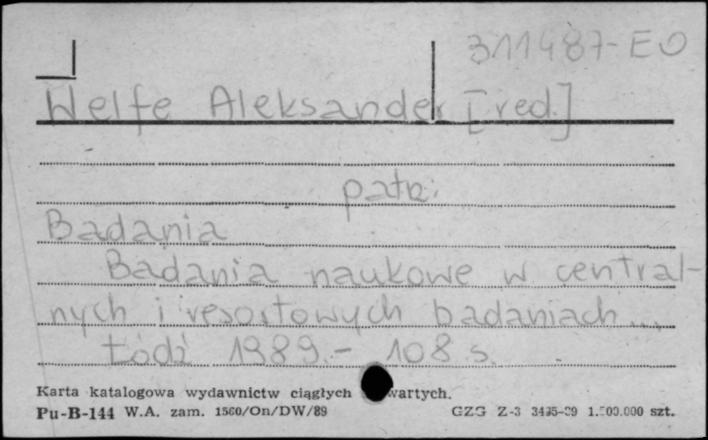 311487-EO
Welfe Aleksander [red.]
patrz:
Badania
Badania naukowe w central-
nych i resortowych badaniach...
Łódź 1989.- 108 s.
Karta katalogowa wydawnictw ciągłych wartych.
Pu-B-144 W.A. zam. 1560/On/DW/89 GZG Z-3 1.500.000 szt.